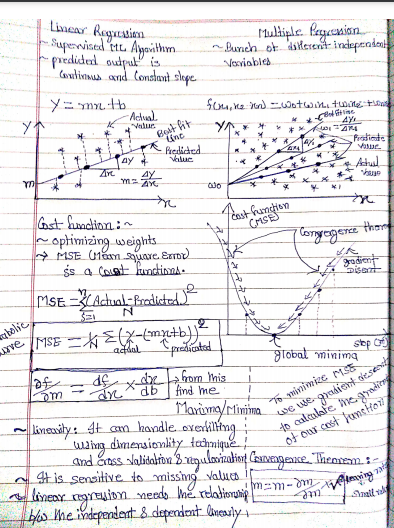 Linear Regression
~ Supervised ML Algorithm
~ predicted output is
Continuous and Constant slope
Multiple Regression
~ Bunch of different independent
variables
Y = mx + b
Y
Actual
value
Best fit
line
Predicted
Value
Δy
Δx
m = Δy/Δx
m
x
f(x1, x2
Best fit line
Y
Predicted
value
Actual
Value
w0
x
Cost function : ~
~ optimizing weights
→ MSE (Mean square Error)
is a Cost functions.
MSE = Σ (Actual - Predicted)²
i=1
N
MSE = 1/N Σ (y - (mx+b))²
actual
predicted
cost function
(MSE)
Convergence
gradient
step
global minima
→ from this
find the
Maxima/Minima
To minimize MSE
we use gradient descent
to calculate the gradient
of our cost function
~ linearity: It can handle overfitting
using dimensionality technique
and cross validation & regularization
~ It is sensitive to missing values
~ linear regression needs the relationship
b/w the independent & dependent linearly
Convergence Theorem : ~
small rate